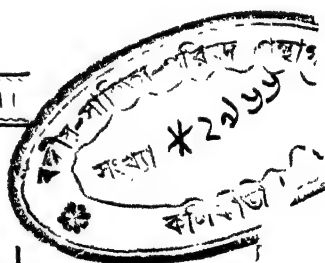 বঙ্গীয়-সাহিত্য-পরিষদ গ্রন্থাগ
সংখ্যা * ২৯৬৬
কলিকাতা